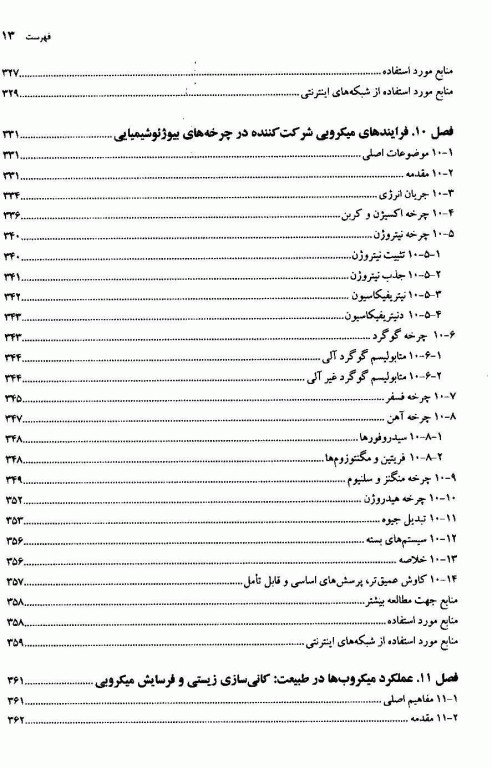 فهرست ۱۳
منابع مورد استفاده ۳۲۷
منابع مورد استفاده از شبکه‌های اینترنتی ۳۲۹
فصل ۱۰. فرایندهای میکروبی شرکت‌کننده در چرخه‌های بیوژئوشیمیایی ۳۳۱
۱-۱۰ موضوعات اصلی ۳۳۱
۲-۱۰ مقدمه ۳۳۱
۳-۱۰ جریان انرژی ۳۳۴
۴-۱۰ چرخه اکسیژن و کربن ۳۳۶
۵-۱۰ چرخه نیتروژن ۳۴۰
۱-۵-۱۰ تثبیت نیتروژن ۳۴۰
۲-۵-۱۰ جذب نیتروژن ۳۴۱
۳-۵-۱۰ نیتریفیکاسیون ۳۴۲
۴-۵-۱۰ دنیتریفیکاسیون ۳۴۳
۶-۱۰ چرخه گوگرد ۳۴۳
۱-۶-۱۰ متابولیسم گوگرد آلی ۳۴۴
۲-۶-۱۰ متابولیسم گوگرد غیر آلی ۳۴۴
۷-۱۰ چرخه فسفر ۳۴۵
۸-۱۰ چرخه آهن ۳۴۷
۱-۸-۱۰ سیدروفورها ۳۴۸
۲-۸-۱۰ فریتین و مگنتوزوم‌ها ۳۴۸
۹-۱۰ چرخه منگنز و سلنیوم ۳۴۹
۱۰-۱۰ چرخه هیدروژن ۳۵۲
۱۱-۱۰ تبدیل جیوه ۳۵۳
۱۲-۱۰ سیستم‌های بسته ۳۵۶
۱۳-۱۰ خلاصه ۳۵۶
۱۴-۱۰ کاوش عمیق‌تر، پرسش‌های اساسی و قابل تأمل ۳۵۷
منابع جهت مطالعه بیشتر ۳۵۸
منابع مورد استفاده ۳۵۸
منابع مورد استفاده از شبکه‌های اینترنتی ۳۵۹
فصل ۱۱. عملکرد میکروب‌ها در طبیعت: کانی‌سازی زیستی و فرسایش میکروبی ۳۶۱
۱-۱۱ مفاهیم اصلی ۳۶۱
۲-۱۱ مقدمه ۳۶۲